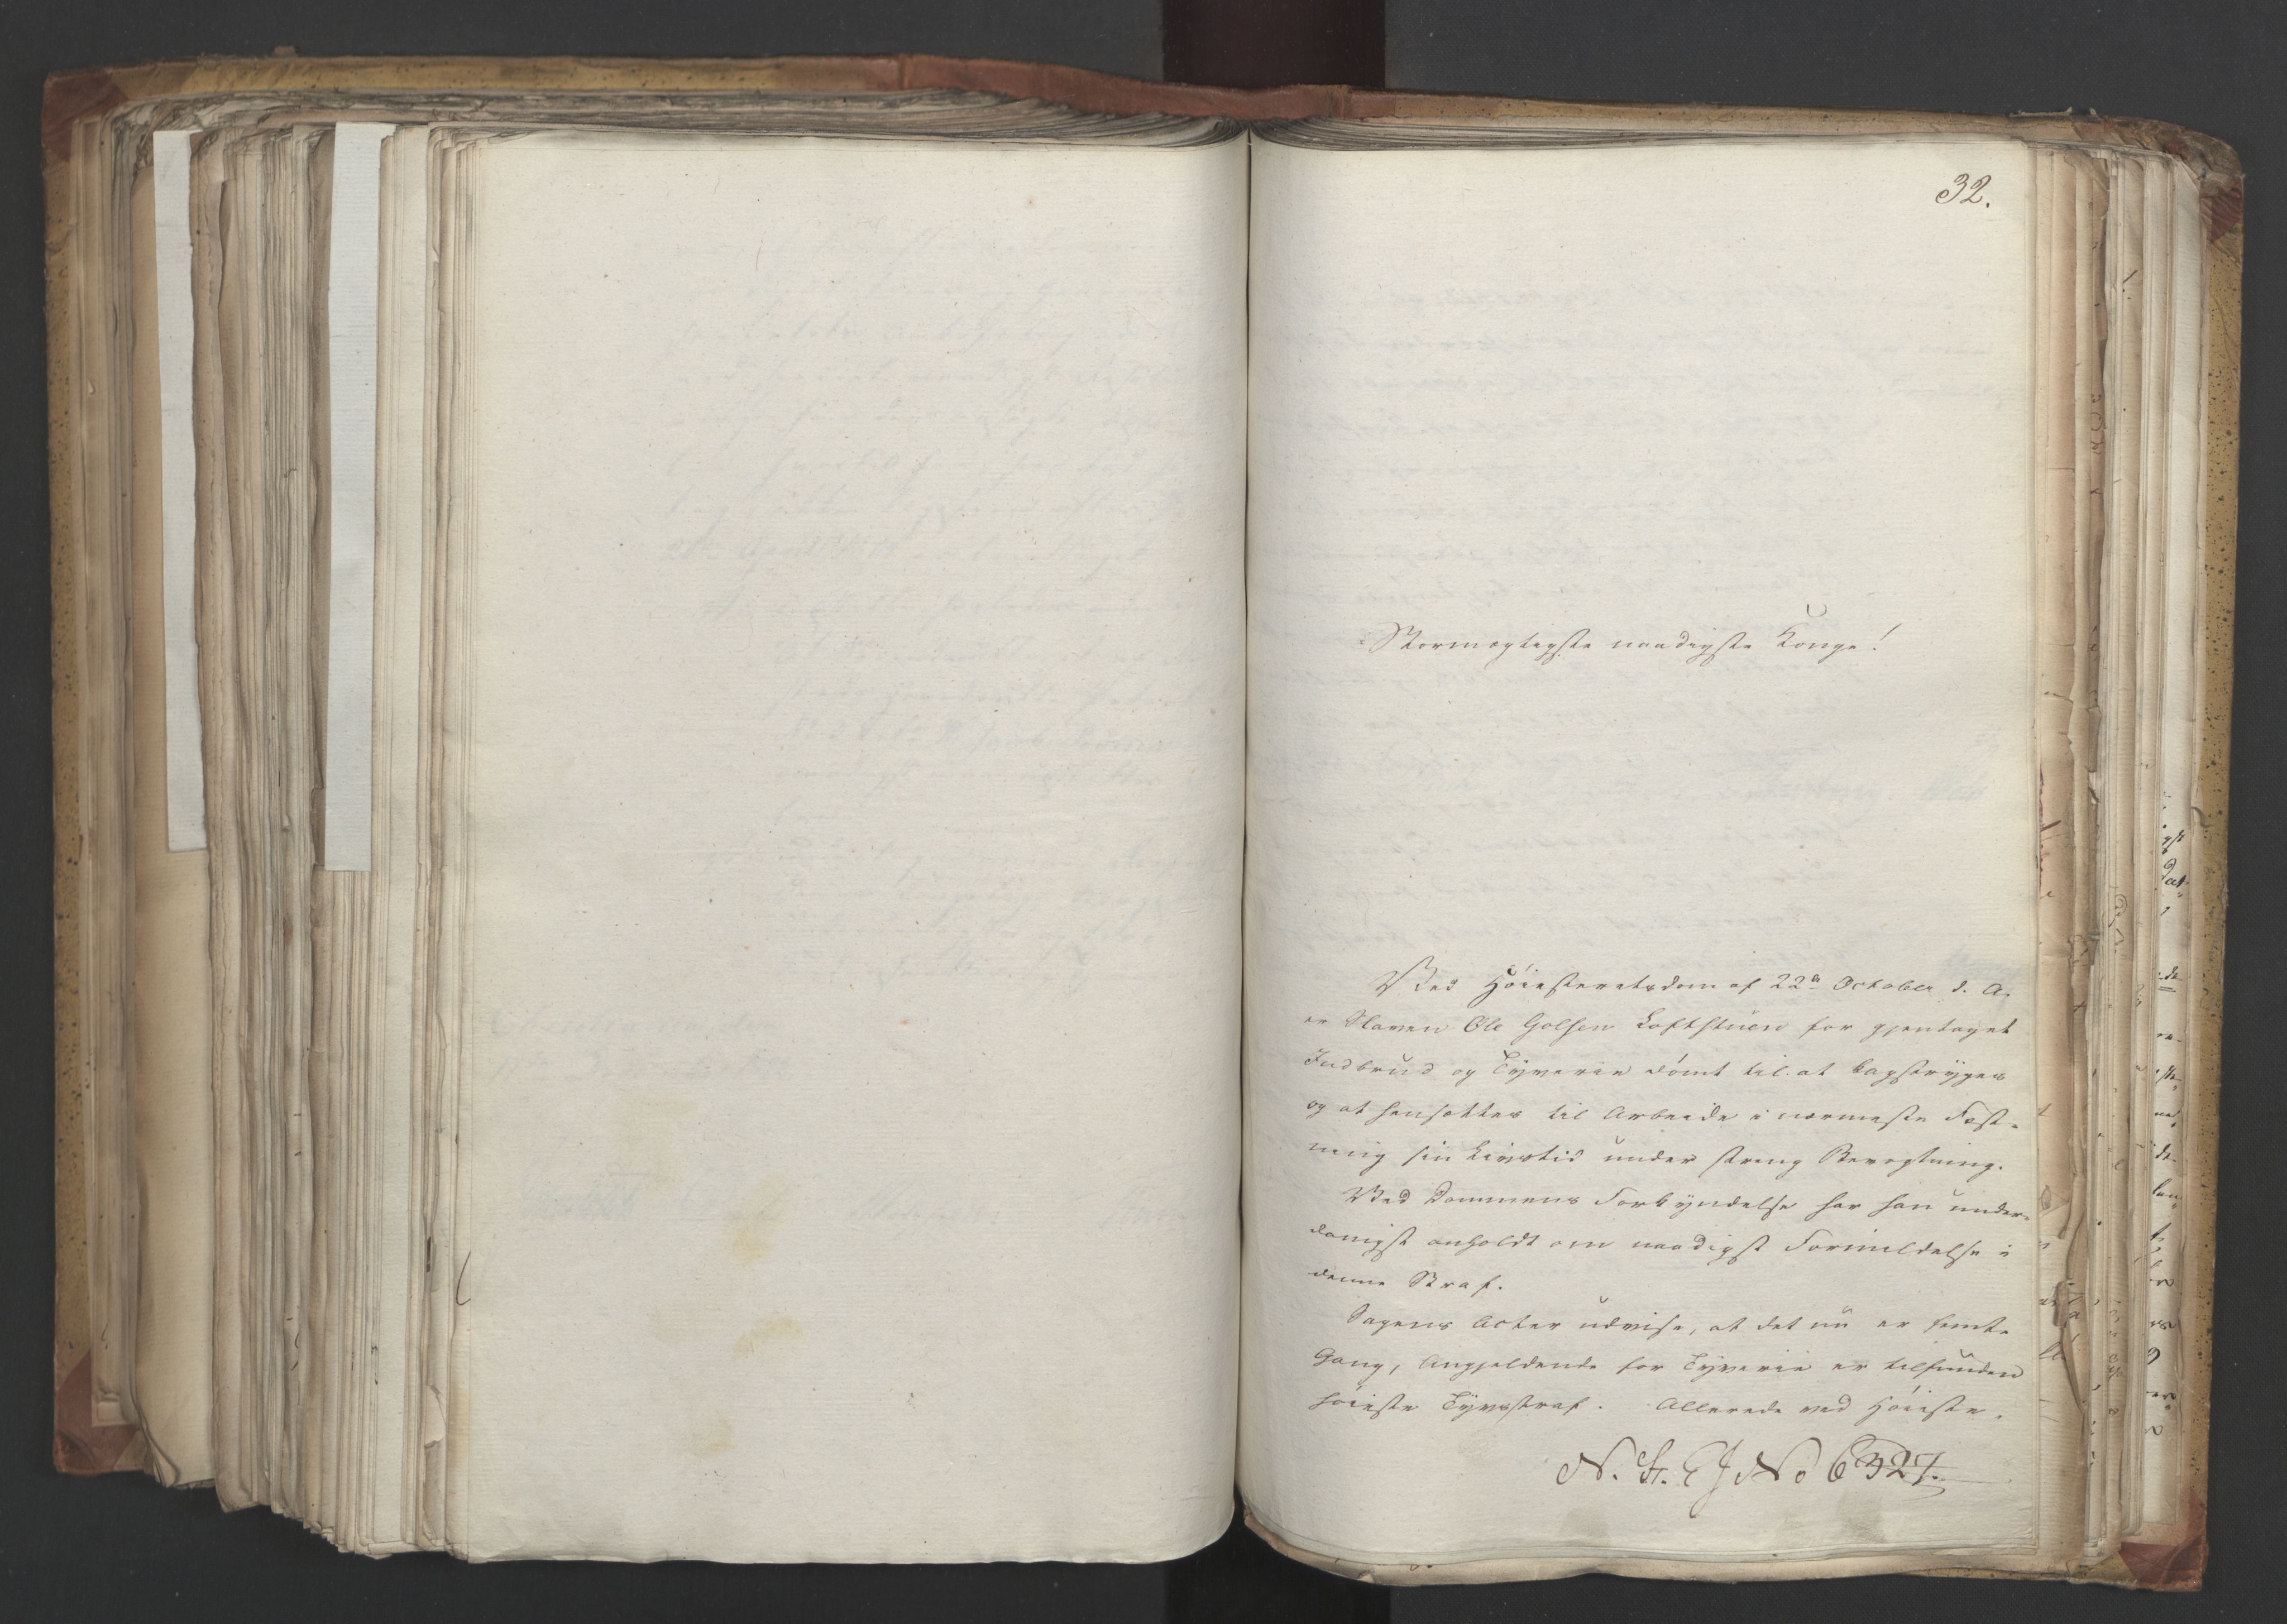 32.
Stormægtigste naadigste Konge!
Ved Høiesteretsdom af 22de October d. A.
er Slaven Ole Holsen Loftstuen for gjentaget
Indbrud og Tyverie dømt til at kagstryges
og at hensættes til Arbeide i nærmeste Fæst-
ning sin Livstid under streng Bevogtning.
Ved Dommens Forkyndelse har han under-
danigst anholdt om naadigst Formildelse i
denne Straf.
Sagens Acter udvise, at det nu er femte
Gang, Angjeldende for Tyverie er tilfunden
høieste Tyvsstraf. Allerede ved Høieste-
No 6327.